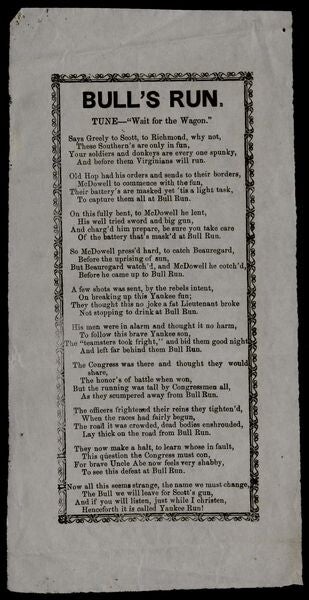 BULL'S RUN.
TUNE—"Wait for the Wagon."
Says Greely to Scott, to Richmond, why not,
These Southern's are only in fun,
Your soldiers and donkeys are every one spunky,
And before them Virginians will run.
Old Hop had his orders and sends to their borders,
McDowell to commence with the fun,
Their battery's are masked yet 'tis a light task,
To capture them all at Bull Run.
On this fully bent, to McDowell he lent,
His well tried sword and big gun,
And charg'd him prepare, be sure you take care
Of the battery that's mask'd at Bull Run.
So McDowell press'd hard, to catch Beauregard,
Before the uprising of sun,
But Beauregard watch'd, and McDowell he cotch'd,
Before he came up to Bull Run.
A few shots was sent, by the rebels intent,
On breaking up this Yankee fun;
They thought this no joke a fat Lieutenant broke
Not stopping to drink at Bull Run.
His men were in alarm and thought it no harm,
To follow this brave Yankee son,
The "teamsters took fright," and bid them good night
And left far behind them Bull Run.
The Congress was there and thought they would
share,
The honor's of battle when won,
But the running was tall by Congressmen all,
As they scumpered away from Bull Run.
The officers frightened their reins they tighten'd,
When the races had fairly begun,
The road it was crowded, dead bodies enshrouded,
Lay thick on the road from Bull Run.
They now make a halt, to learn whose in fault,
This question the Congress must con,
For brave Uncle Abe now feels very shabby,
To see this defeat at Bull Run.
Now all this seems strange, the name we must change,
The Bull we will leave for Scott's gun,
And if you will listen, just while I christen,
Henceforth it is called Yankee Run!